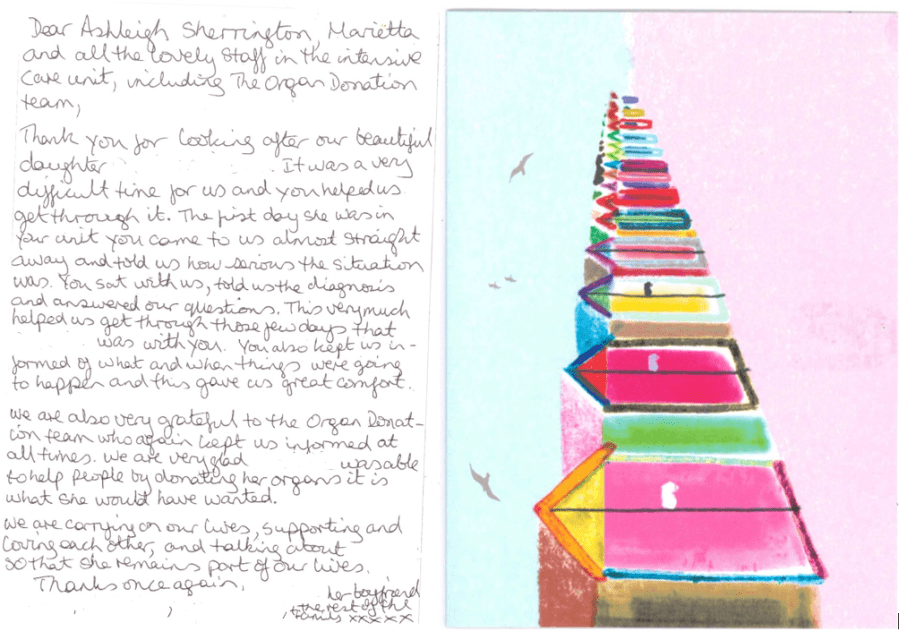 Dear Ashleigh Sherrington, Marietta
and all the lovely staff in the intensive
care unit, including The Organ Donation
team,
Thank you for looking after our beautiful
daughter . It was a very
difficult time for us and you helped us
get through it. The first day she was in
your unit you came to us almost straight
away and told us how serious the situation
was. You sat with us, told us the diagnosis
and answered our questions. This very much
helped us get through those few days that
was with you. You also kept us in-
formed of what and when things were going
to happen and this gave us great comfort.
We are also very grateful to the Organ Donat-
ion team who again kept us informed at
all times. We are very glad was able
to help people by donating her organs it is
what she would have wanted.
We are carrying on our lives, supporting and
loving each other, and talking about
so that she remains part of our lives.
Thanks once again,
her boyfriend
, , , the rest of the
family xxxxx